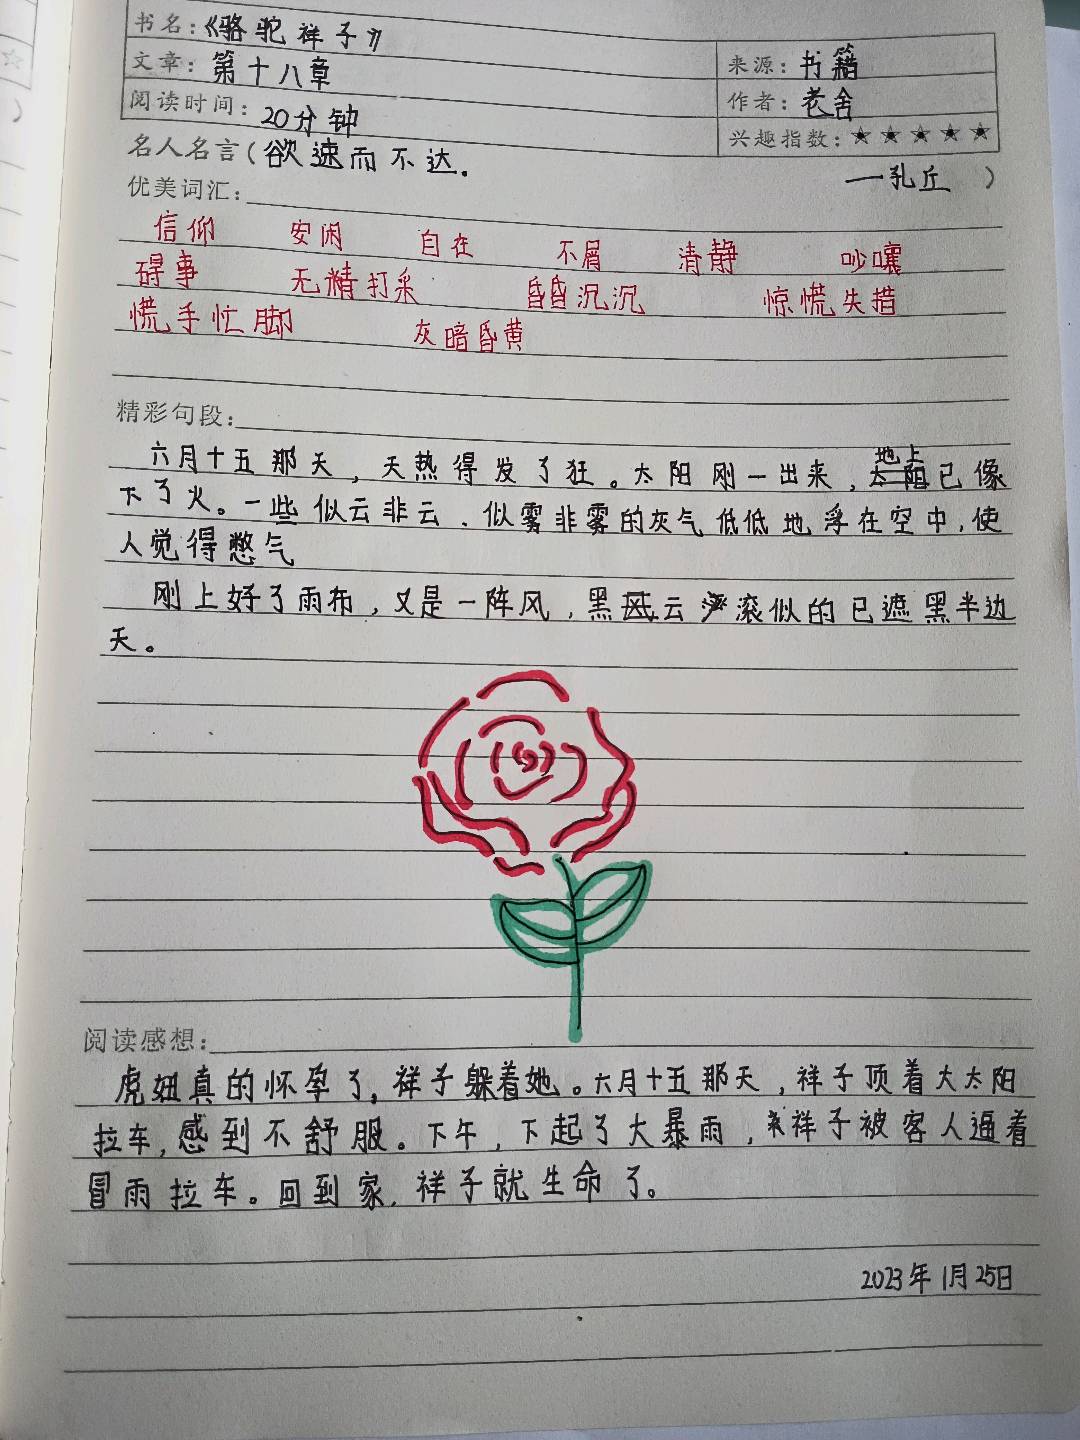 书名：《骆驼祥子》
文章：第十八章
来源：书籍
阅读时间：20分钟
作者：老舍
兴趣指数：★★★★★
名人名言（欲速而不达. —孔丘 ）
优美词汇：
信仰 安闲 自在 不屑 清静 吵嚷
碍事 无精打采 昏昏沉沉 惊慌失措
慌手忙脚 灰暗昏黄
精彩句段：
六月十五那天，天热得发了狂。太阳刚一出来，地上已像
下了火。一些似云非云、似雾非雾的灰气低低地浮在空中，使
人觉得憋气
刚上好了雨布，又是一阵风，黑云滚似的已遮黑半边
天。
阅读感想：
虎妞真的怀孕了，祥子躲着她。六月十五那天，祥子顶着大太阳
拉车，感到不舒服。下午，下起了大暴雨，祥子被客人逼着
冒雨拉车。回到家，祥子就生命了。
2023年1月25日